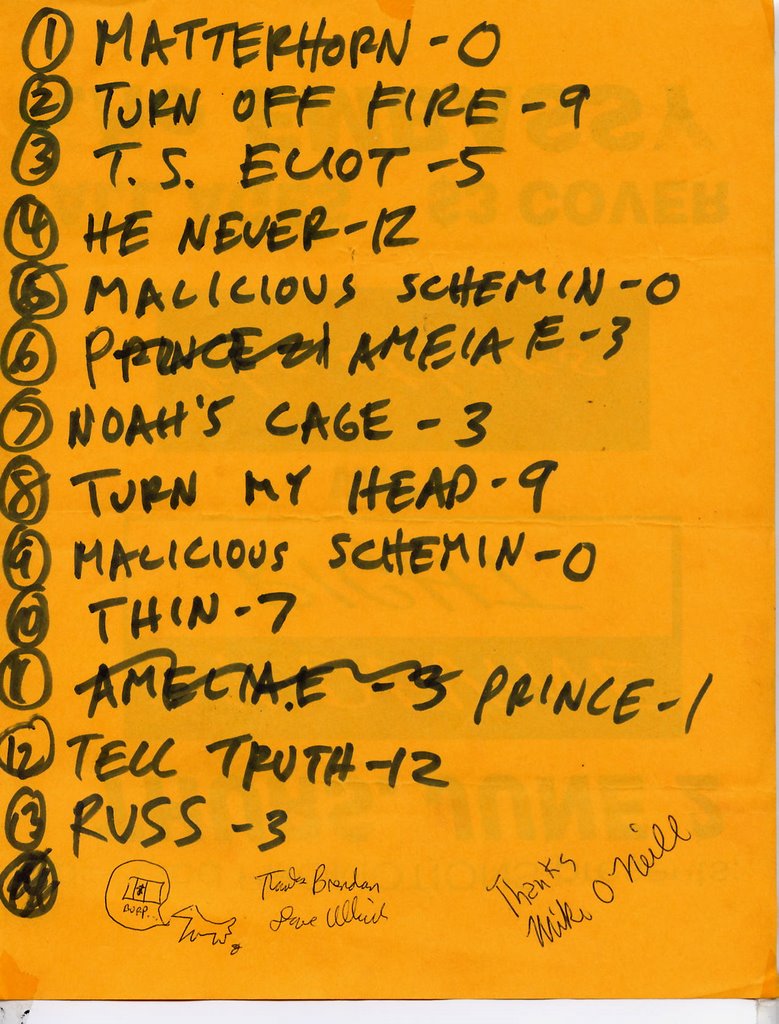 1 MATTERHORN - 0
2 TURN OFF FIRE - 9
3 T. S. ELIOT - 5
4 HE NEVER - 12
5 MALICIOUS SCHEMIN - 0
6 PRINCE - 1 AMELIA E - 3
7 NOAH'S CAGE - 3
8 TURN MY HEAD - 9
9 MALICIOUS SCHEMIN - 0
10 THIN - 7
11 AMELIA.E - 3 PRINCE - 1
12 TELL TRUTH - 12
13 RUSS - 3
14
BURP...
Thanks Brendan
Dave Ullrich
Thanks
Mike O'Neill
$3 COVER
JUNE 2